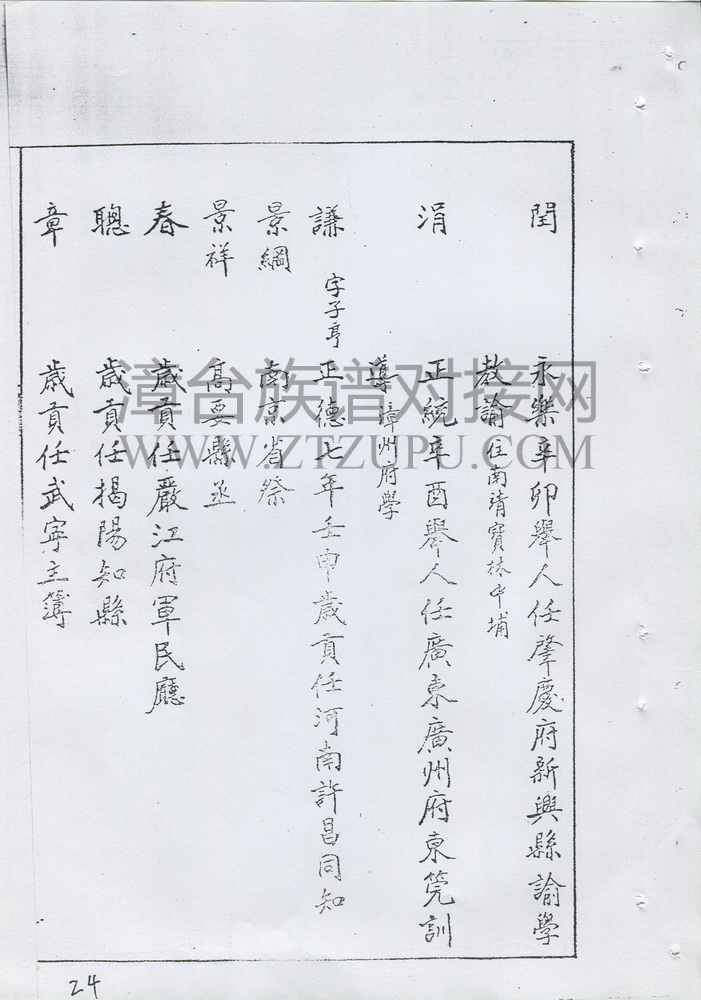 閏 永樂辛卯舉人任肇慶府新興縣諭學
教諭 住南靖寶林中埔
涓 正統辛酉舉人任廣東廣州府東筦訓
導 漳州府學
謙 字子亨 正德七年壬申歲貢任河南許昌同知
景綱 南京省祭
景祥 高要縣丞
春 歲貢任嚴江府軍民廳
聰 歲貢任揭陽知縣
章 歲貢任武寧主簿
漳台族谱对接网
WWW.ZTZUPU.COM
24